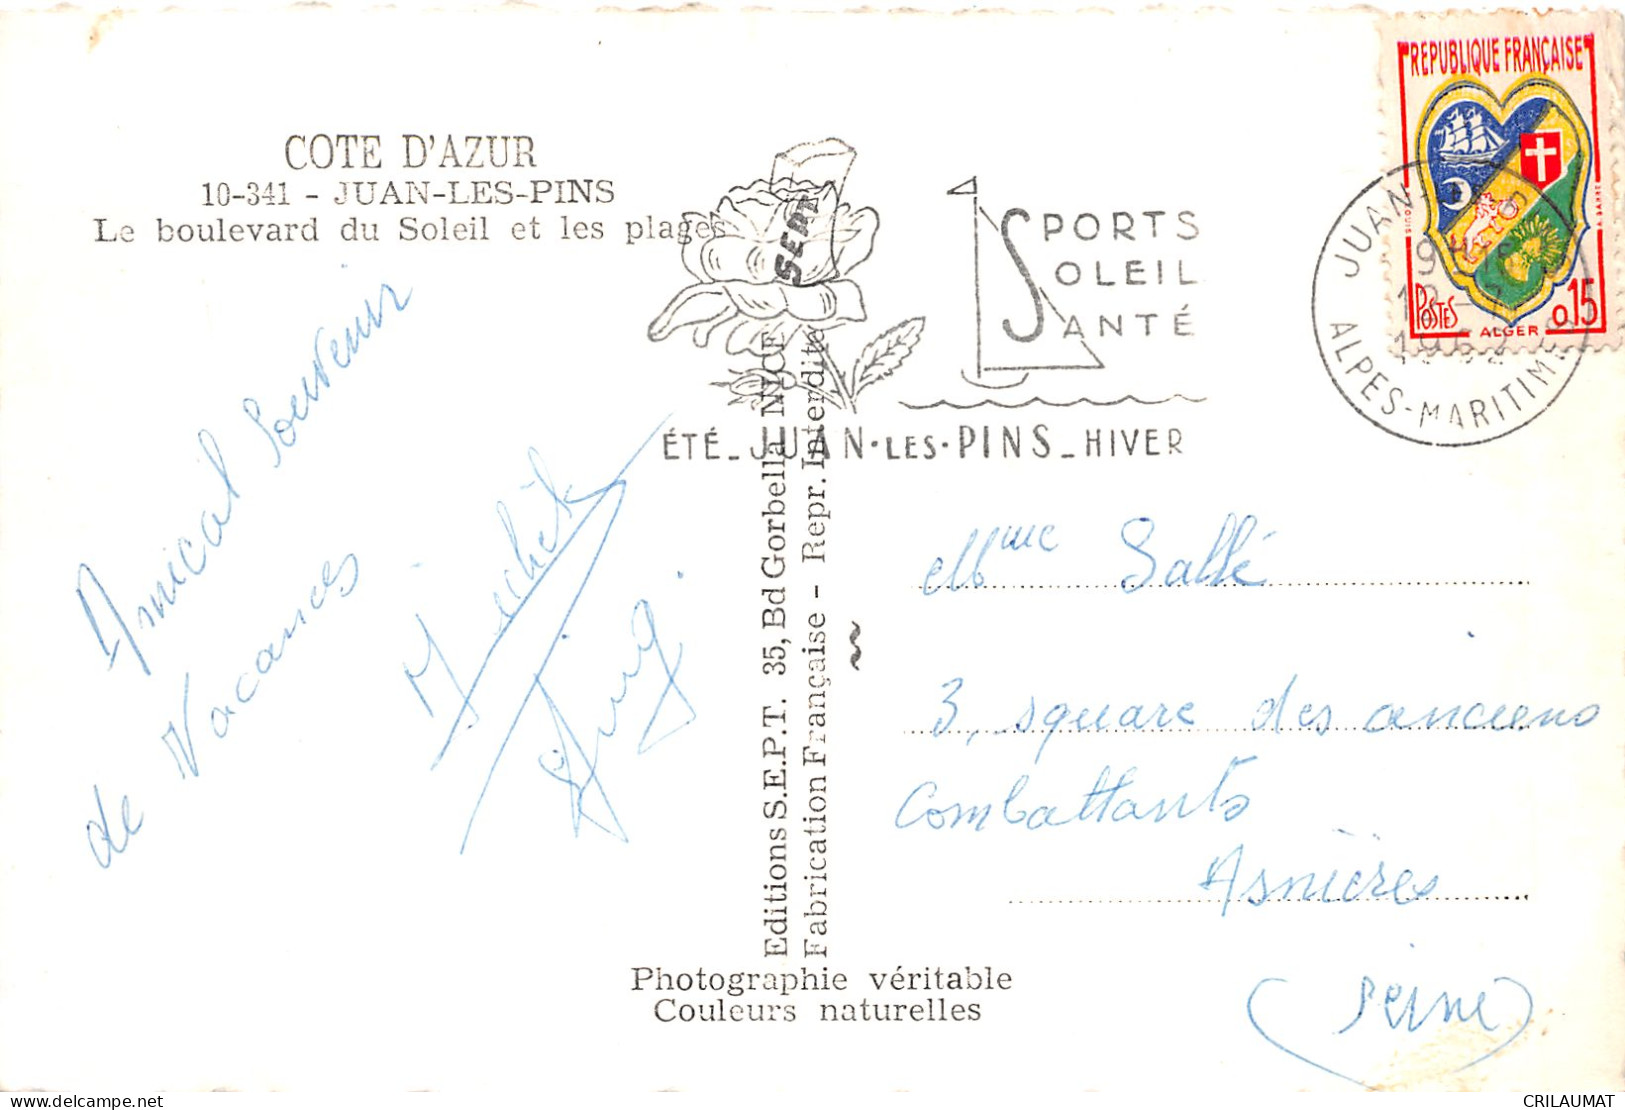 COTE D'AZUR
10-341 - JUAN-LES-PINS
Le boulevard du Soleil et les plages
Amical Souvenir
de Vacances
SEPT
Editions S.E.P.T. 35, Bd Gorbella NICE
Fabrication Française - Repr. Interdite
Photographie véritable
Couleurs naturelles
SPORTS
SOLEIL
SANTÉ
ÉTÉ_JUAN·LES·PINS_HIVER
JUAN-
ALPES-MARITIMES
REPUBLIQUE FRANÇAISE
POSTES
ALGER
0,15
Mme Sallé
3, square des anciens
Combattants
Asnières
(Seine)
CRILAUMAT